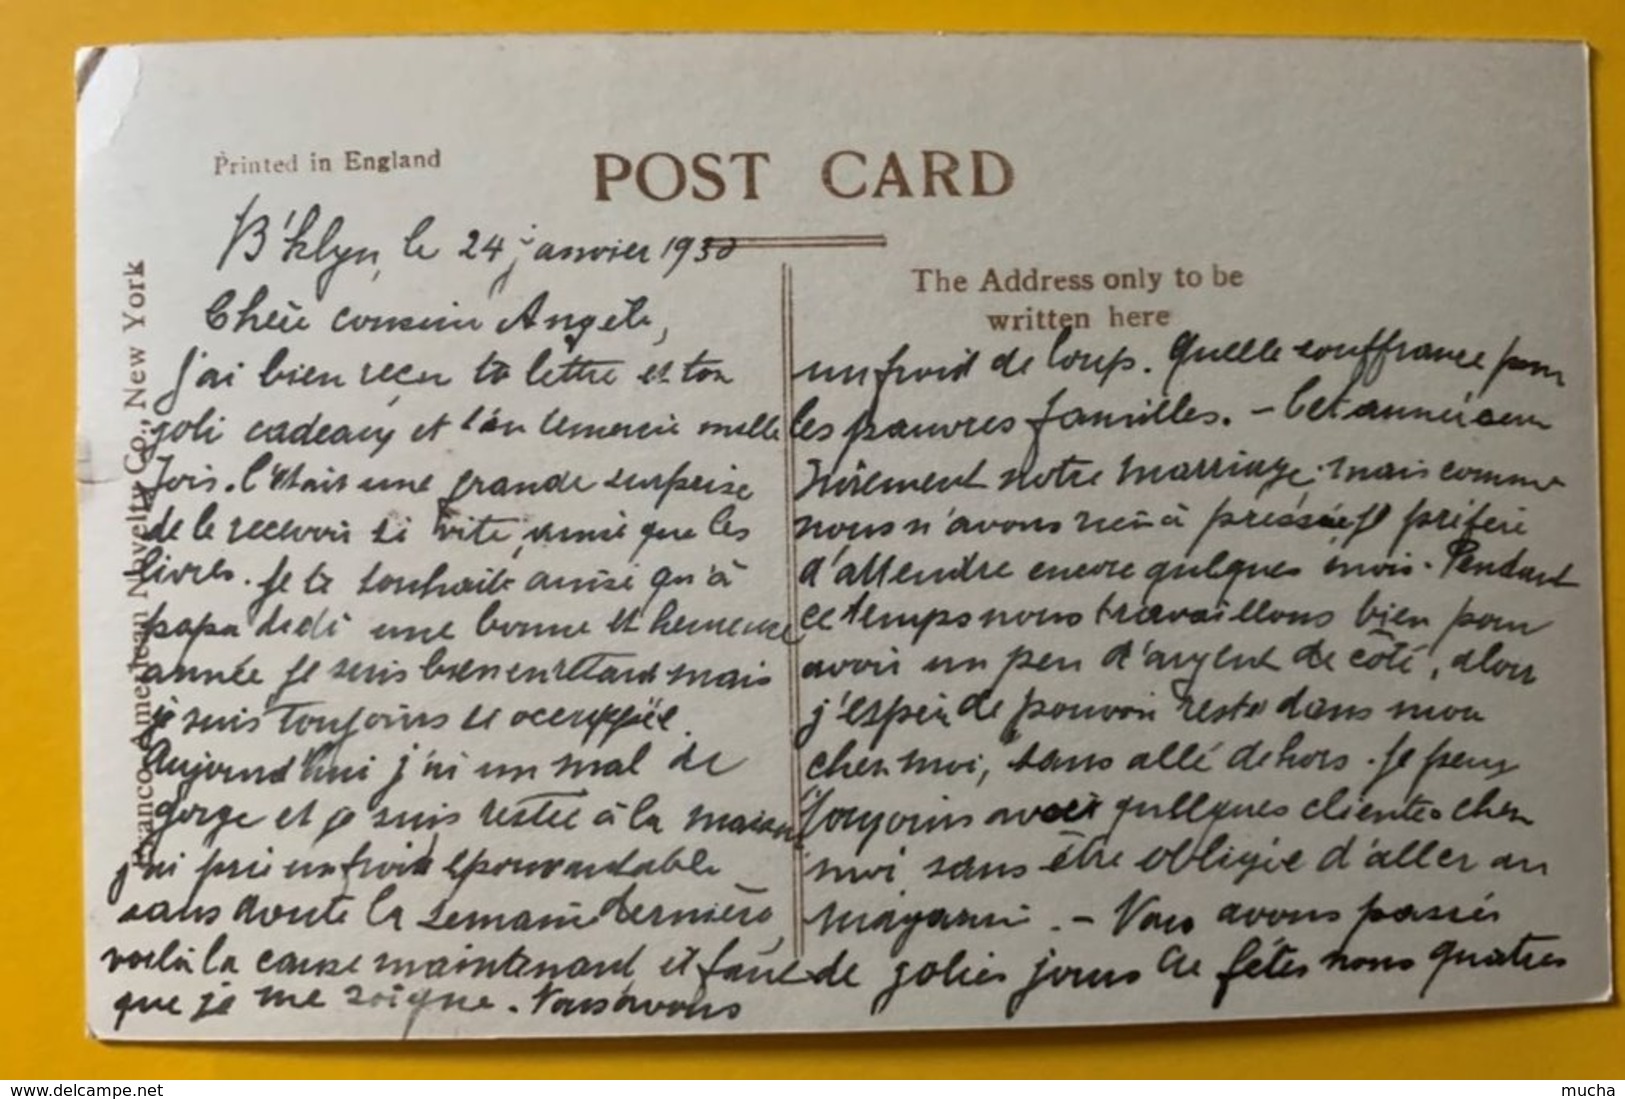 Printed in England
POST CARD
Franco-American Novelty Co., New York
The Address only to be
written here
B'klyn, le 24 janvier 1930
Chère cousine Angèle,
J'ai bien reçu ta lettre et ton
joli cadeaux et t'en remercie mille
fois. C'était une grande surprise
de le recevoir si vite, ainsi que les
livres. Je te souhaite ainsi qu'à
papa dédé une bonne et heureuse
année je suis bien en retard mais
je suis toujours si occuppée.
Aujourd'hui j'ai un mal de
gorge et je suis restée à la maison
j'ai pris un froid épouvandable
sans doute la semaine dernière,
voilà la cause maintenant et faut
que je me soigne. Nous avons
un froid de loup. Quelle souffrance pour
les pauvres familles. - Cet année
notre marriage. mais comme
nous n'avons rien à pressée je préfère
d'attendre encore quelques mois. Pendant
ce temps nous travaillons bien pour
avoir un peu d'argent de côté, alors
j'espère de pouvoir reste dans mon
chez moi, sans allé dehors. Je peux
toujours avoir quelques clientes chez
moi, sans être obligée d'aller au
magasin. - Nous avons passés
de jolies jours de fêtes nous quatres